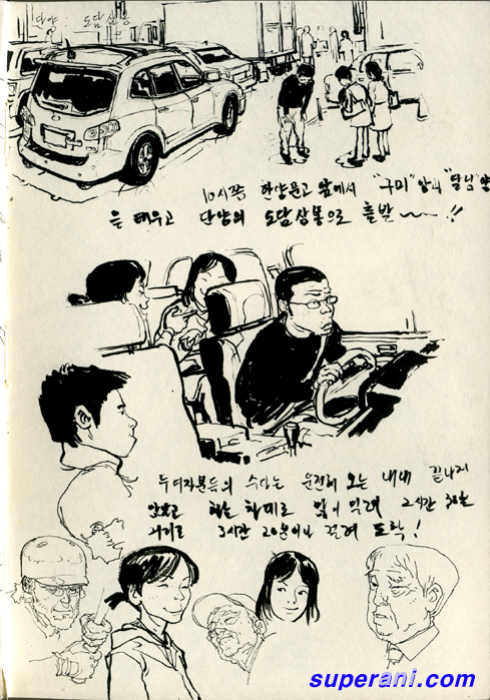 단양 : 도담삼봉
10시쯤 한양문고 앞에서 "구미"양과 "달님"양
을 태우고 단양의 도담삼봉으로 출발~~!!
두 여자분들의 수다는 운전해 오는 내내 끝나지
않았고 하는 차 길이 막혀 2시간 30분
거리를 3시간 20분이나 걸려 도착!
superani.com